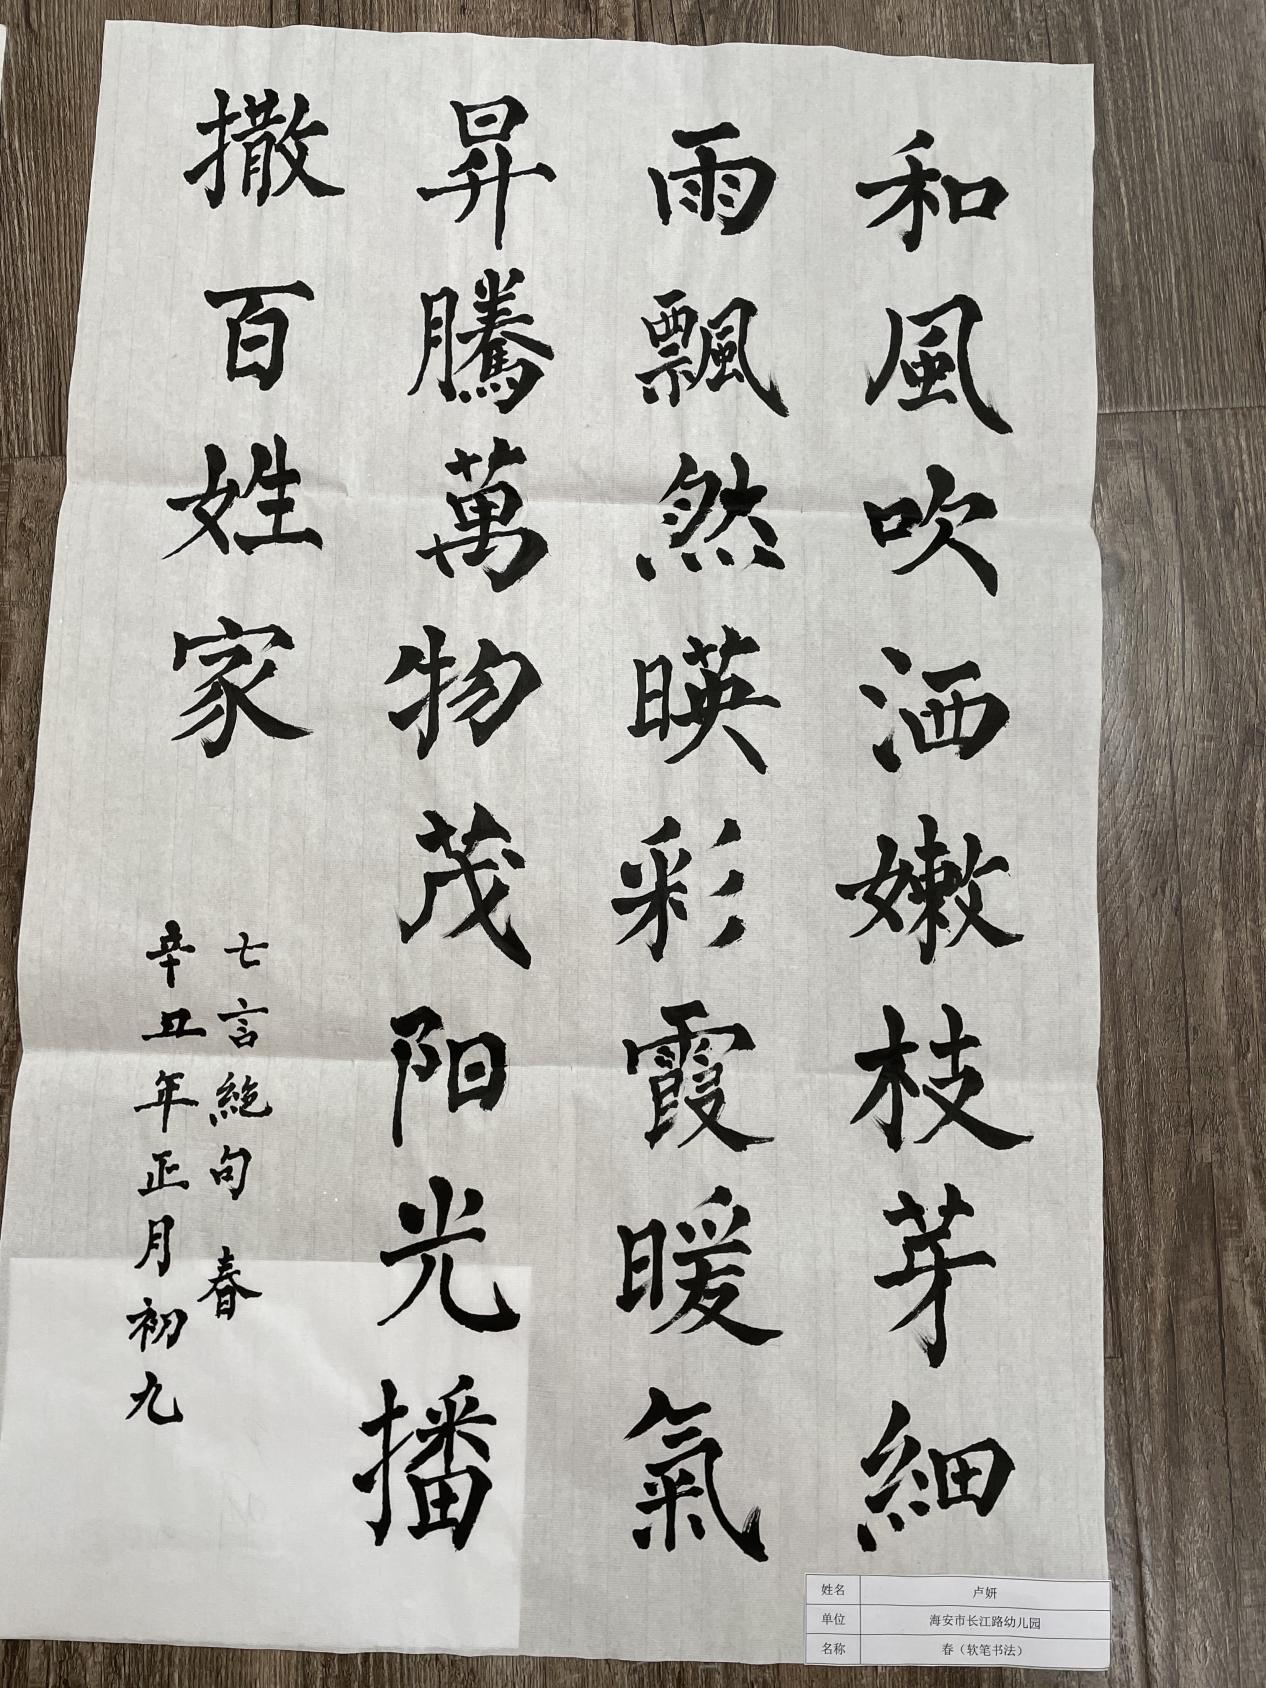 和風吹洒嫩枝芽細
雨飄然暎彩霞暖氣
昇騰萬物茂阳光播
撒百姓家
七言絶句 春
辛丑年正月初九
姓名 卢妍
单位 海安市长江路幼儿园
名称 春（软笔书法）